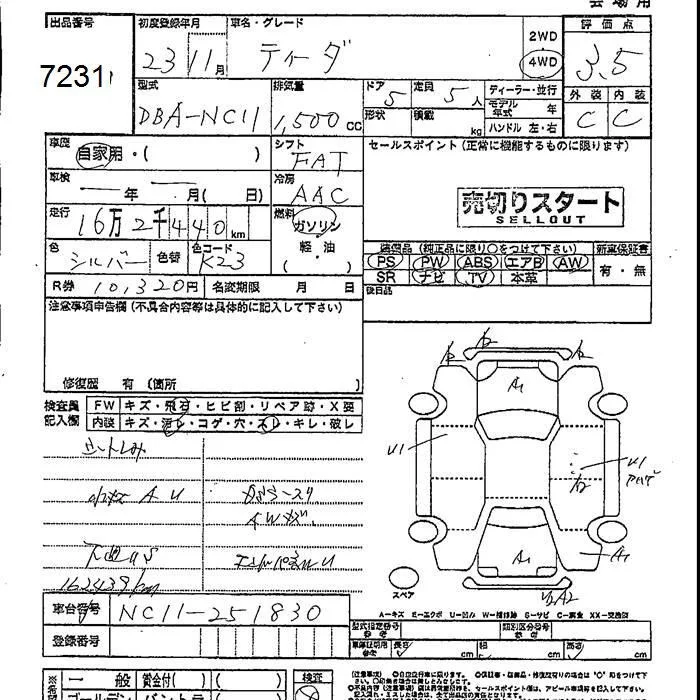 会場用
出品番号 初度登録年月 車名・グレード 2WD 評価点
7231 23 11月 ティーダ 4WD 3.5
型式 排気量 ドア 定員 ディーラー・並行 外装 内装
DBA-NC11 1,500CC 5 5人 モデル年式 年 C C
形状 積載 kg ハンドル 左・右
車歴 シフト セールスポイント (正常に機能するものに限ります)
自家用・( ) FAT
車検 冷房
年 月( 日) AAC 売切りスタート
走行 燃料 SELLOUT
16万2千440km ガソリン
色 色替 色コード 軽・油 装備品 (純正品に限り○をつけて下さい) 新車保証書
シルバー K23 ( ) PS PW ABS エアB AW 有・無
R券 10,320円 名変期限 月 日 SR ナビ TV 本革
後日品
注意事項申告欄 (不具合内容等は具体的に記入して下さい)
修復歴 有 (箇所 )
検査員 FW キズ・飛石・ヒビ割・リペア跡・X要
記入欄 内装 キズ・汚レ・コゲ・穴・スレ・キレ・破レ
シートしみ
小キズ A U
AWキズ
下廻りS エンドパネルU
162439km
A1
U1 U1
A2
A1 A1
A2
スペア
A-キズ E-エクボ U-凹ミ W-補修跡 S-サビ C-腐食 XX-交換済
車台番号 NC11-251830 型式指定番号 類別区分番号
登録番号 長さ cm 幅 cm 高さ cm
一般 賞金付( ) ( 検査
ゴールデン